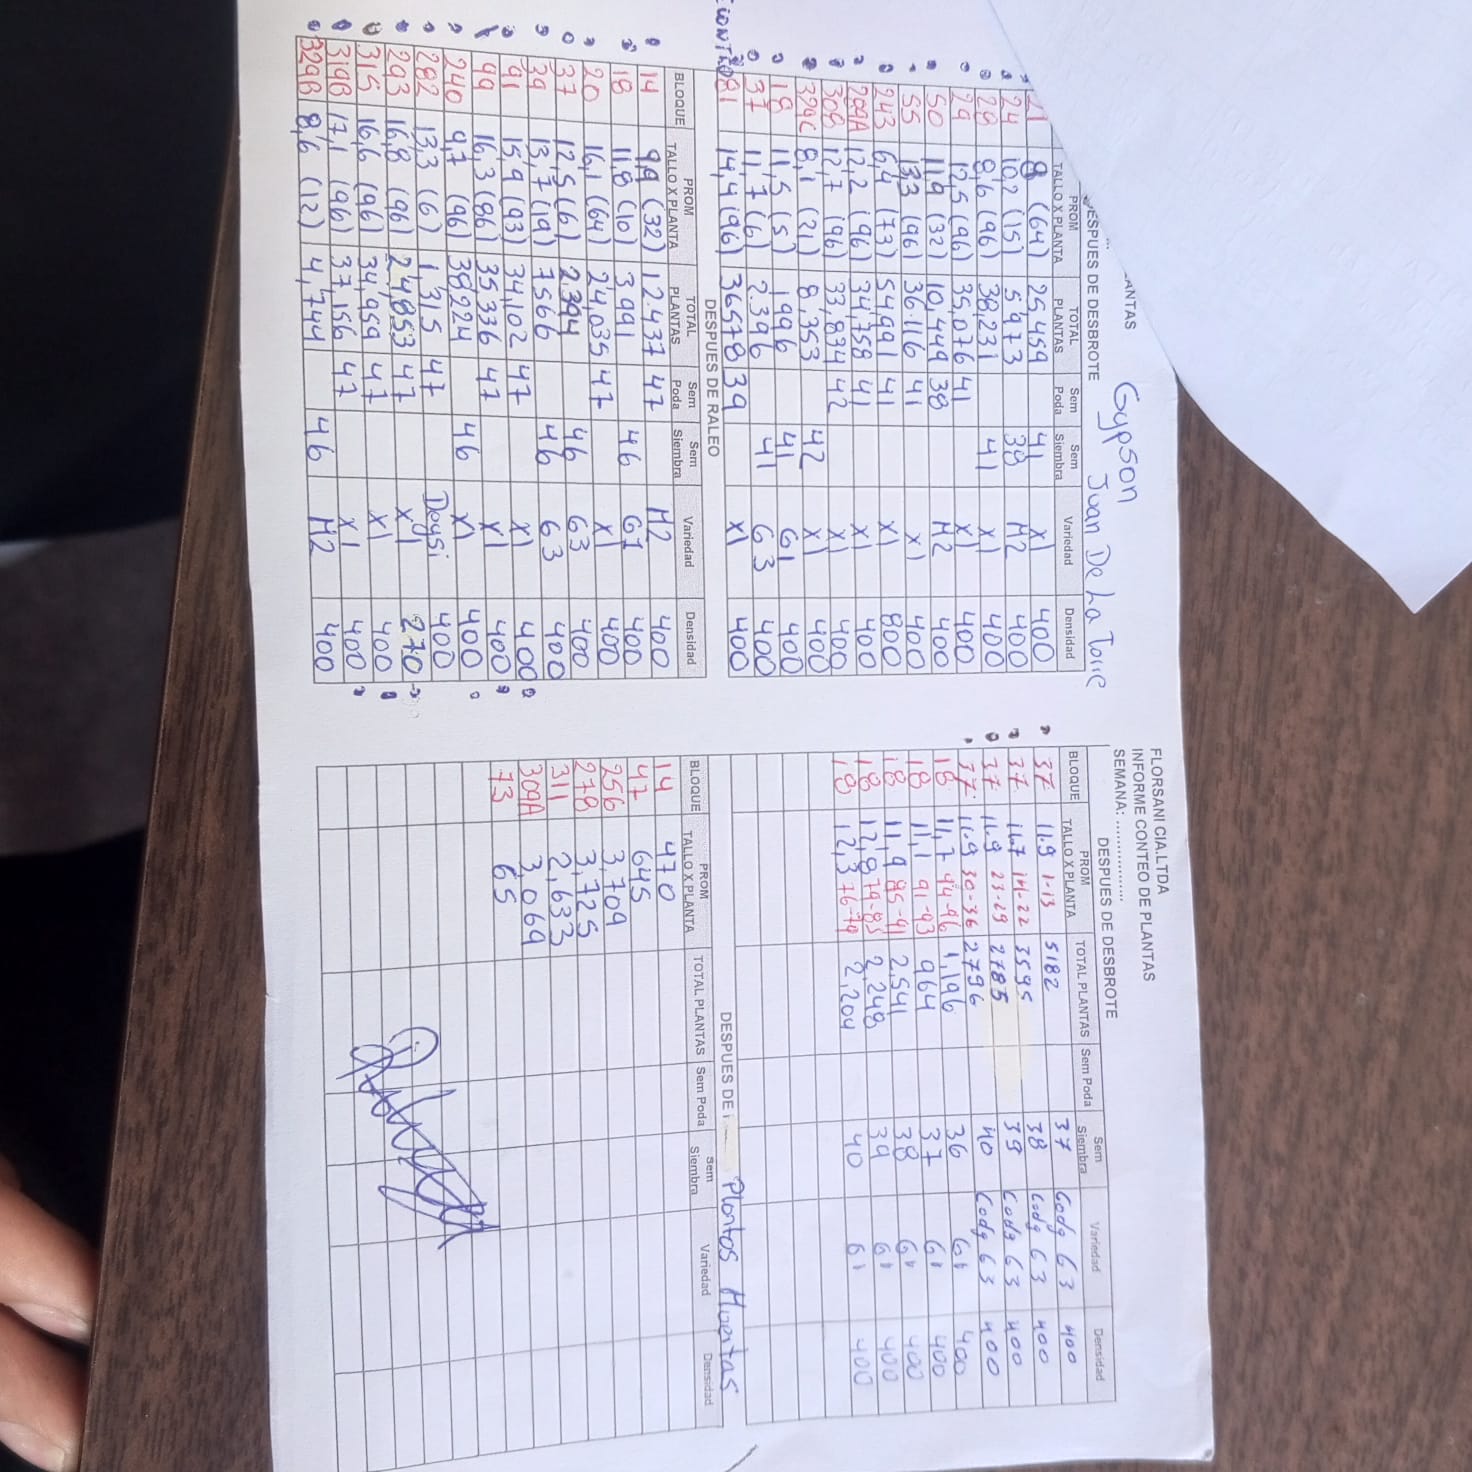 ANTAS
Gypson Juan De La Torre
ESPUES DE DESBROTE
PROM TALLO X PLANTA TOTAL PLANTAS Sem Poda Sem Siembra Variedad Densidad
21 8 (64) 25,459 41 X1 400
24 10,2 (15) 5,973 38 M2 400
28 8,6 (96) 38,231 41 X1 400
29 12,5 (96) 35,076 41 X1 400
50 11,9 (32) 10,449 38 M2 400
55 13,3 (96) 36.116 41 X1 400
243 6,4 (73) 54,991 41 X1 800
289A 12,2 (96) 34,758 41 X1 400
308 12,7 (96) 33,834 42 X1 400
329C 8,1 (21) 8,353 42 X1 400
18 11,5 (5) 1996 41 61 400
37 11,7 (6) 2.396 41 63 400
81 14,4 (96) 36578 39 X1 400
DESPUES DE RALEO
BLOQUE PROM TALLO X PLANTA TOTAL PLANTAS Sem Poda Sem Siembra Variedad Densidad
14 9,9 (32) 12.437 47 M2 400
18 11,8 (10) 3991 46 61 400
20 16,1 (64) 24,035 47 X1 400
37 12,5 (6) 2.394 46 63 400
39 13,7 (19) 7566 46 63 400
91 15,9 (93) 34,102 47 X1 400
99 16,3 (86) 35336 47 X1 400
240 9,7 (96) 38224 46 X1 400
282 13,3 (6) 1,315 47 Daysi 400
293 16,8 (96) 24,853 47 X1 270
315 16,6 (96) 34,959 47 X1 400
319B 17,1 (96) 37,156 47 X1 400
329B 8,6 (12) 4,744 46 M2 400
FLORSANI CIA.LTDA
INFORME CONTEO DE PLANTAS
SEMANA: ..................
DESPUES DE DESBROTE
BLOQUE PROM TALLO X PLANTA TOTAL PLANTAS Sem Poda Sem Siembra Variedad Densidad
37 11.9 1-13 5182 37 Codg 63 400
37 11.7 14-22 3595 38 Codg 63 400
37 11.9 23-29 2785 39 Codg 63 400
37 11.9 30-36 2796 40 Codg 63 400
18 11,7 94-96 1,196 36 61 400
18 11,1 91-93 964 37 61 400
18 11,9 85-91 2,541 38 61 400
18 12,8 79-85 2,248 39 61 400
18 12,3 76-79 2,204 40 61 400
DESPUES DE Plantas Muertas
BLOQUE PROM TALLO X PLANTA TOTAL PLANTAS Sem Poda Sem Siembra Variedad Densidad
14 470
47 645
256 3,709
278 3,725
311 2,633
309A 3,069
73 65